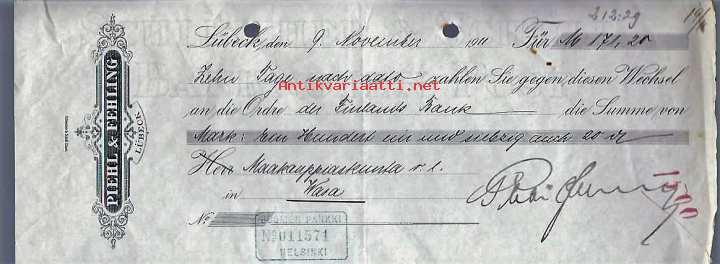 212:29
Lübeck, den 9. November 1911 Für M 171,20
Zehn Tage nach dato zahlen Sie gegen diesen Wechsel
Antikvariaatti.net
an die Ordre der Finlands Bank die Summe von
Mark: Ein Hundert ein und siebzig auch 20 d
Herr Maakauppiaskunta r. l.
in Wasa
No
SUOMEN PANKKI
No 011571
HELSINKI
PIEHL & FEHLING
LÜBECK